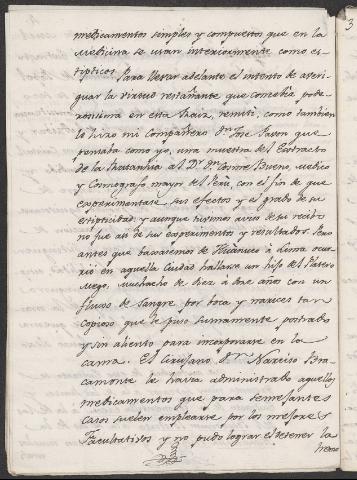 medicamentos simples y compuestos que en la
Medicina se usan interiormente como es-
tipticos. Para llevar adelante el intento de averi-
guar la virtud restañante que concebia pode-
rosisima en esta Raiz, remiti, como tambien
lo hizo mi Compañero Dn. Jose Pavon que
pensaba como yo, una muestra del Extracto
de la Ratanhia al Dr. Dn. Cosme Bueno, Medico
y Cosmografo mayor del Peru, con el fin de que
experimentase sus efectos y el grado de su
estipticidad; y aunque tuvimos aviso de su recibo
no fue asi de sus experimentos y resultados. Pero
antes que pasaremos de Huanuco à Lima ocur-
rio en aquella Ciudad hallarse un hijo del Platero
Mego, muchacho de diez à doce años con un
fluxo de Sangre por boca y narices tan
copioso que le puso sumamente postrado
y sin aliento para incorporarse en la
cama. El Cirujano Dn. Narciso Bra-
camonte le havia administrado aquellos
medicamentos que para semejantes
casos suelen emplearse por los mejores
Facultativos y no pudo lograr el retener la
hemo
3